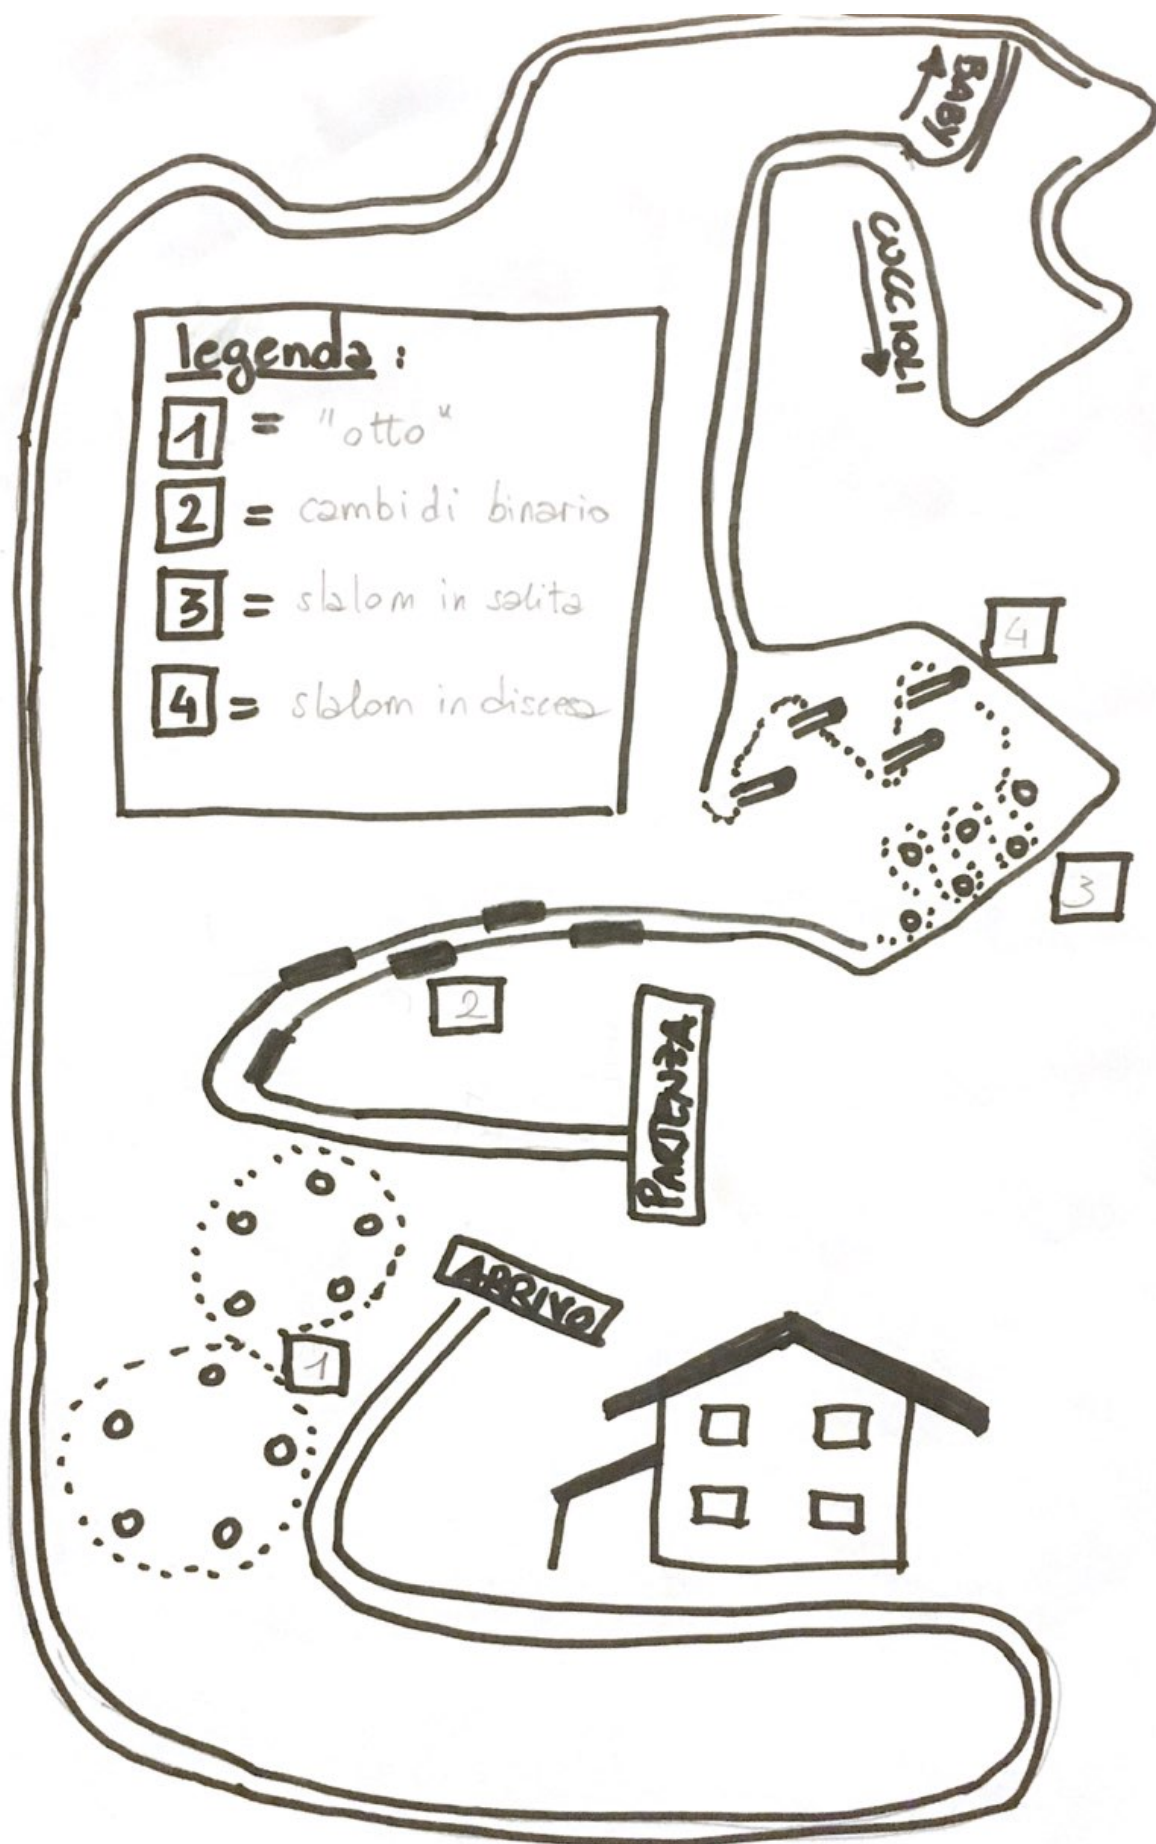 BABY
CUCCIOLI
legenda:
1 = "otto"
2 = cambi di binario
3 = slalom in salita
4 = slalom in discesa
4
3
2
PARTENZA
ARRIVO
1